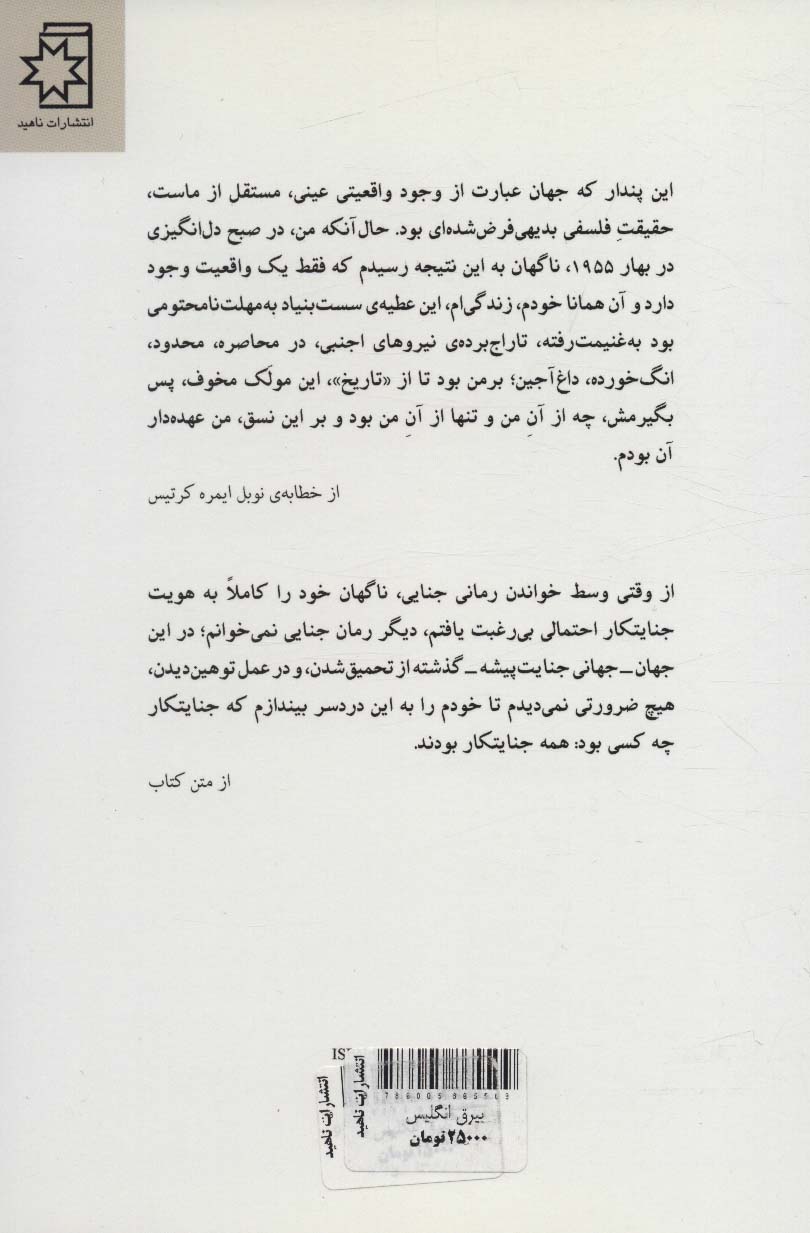 انتشارات ناهید
این پندار که جهان عبارت از وجود واقعیتی عینی، مستقل از ماست،
حقیقتِ فلسفی بدیهی‌فرض‌شده‌ای بود. حال‌آنکه من، در صبح دل‌انگیزی
در بهار ۱۹۵۵، ناگهان به این نتیجه رسیدم که فقط یک واقعیت وجود
دارد و آن همانا خودم، زندگی‌ام، این عطیه‌ی سست‌بنیاد به‌مهلت‌نامحتومی
بود به‌غنیمت‌رفته، تاراج‌برده‌ی نیروهای اجنبی، در محاصره، محدود،
انگ‌خورده، داغ‌آجین؛ برمن بود تا از «تاریخ»، این مولَک مخوف، پس
بگیرمش، چه از آنِ من و تنها از آنِ من بود و بر این نسق، من عهده‌دار
آن بودم.
از خطابه‌ی نوبل ایمره کرتیس
از وقتی وسط خواندن رمانی جنایی، ناگهان خود را کاملاً به هویت
جنایتکار احتمالی بی‌رغبت یافتم، دیگر رمان جنایی نمی‌خوانم؛ در این
جهان ــ جهانی جنایت‌پیشه ــ گذشته از تحمیق‌شدن، و در عمل توهین‌دیدن،
هیچ ضرورتی نمی‌دیدم تا خودم را به این دردسر بیندازم که جنایتکار
چه کسی بود: همه جنایتکار بودند.
از متن کتاب
انتشارات ناهید
انتشارات ناهید
بیرق انگلیس
۲۵۰۰۰ تومان